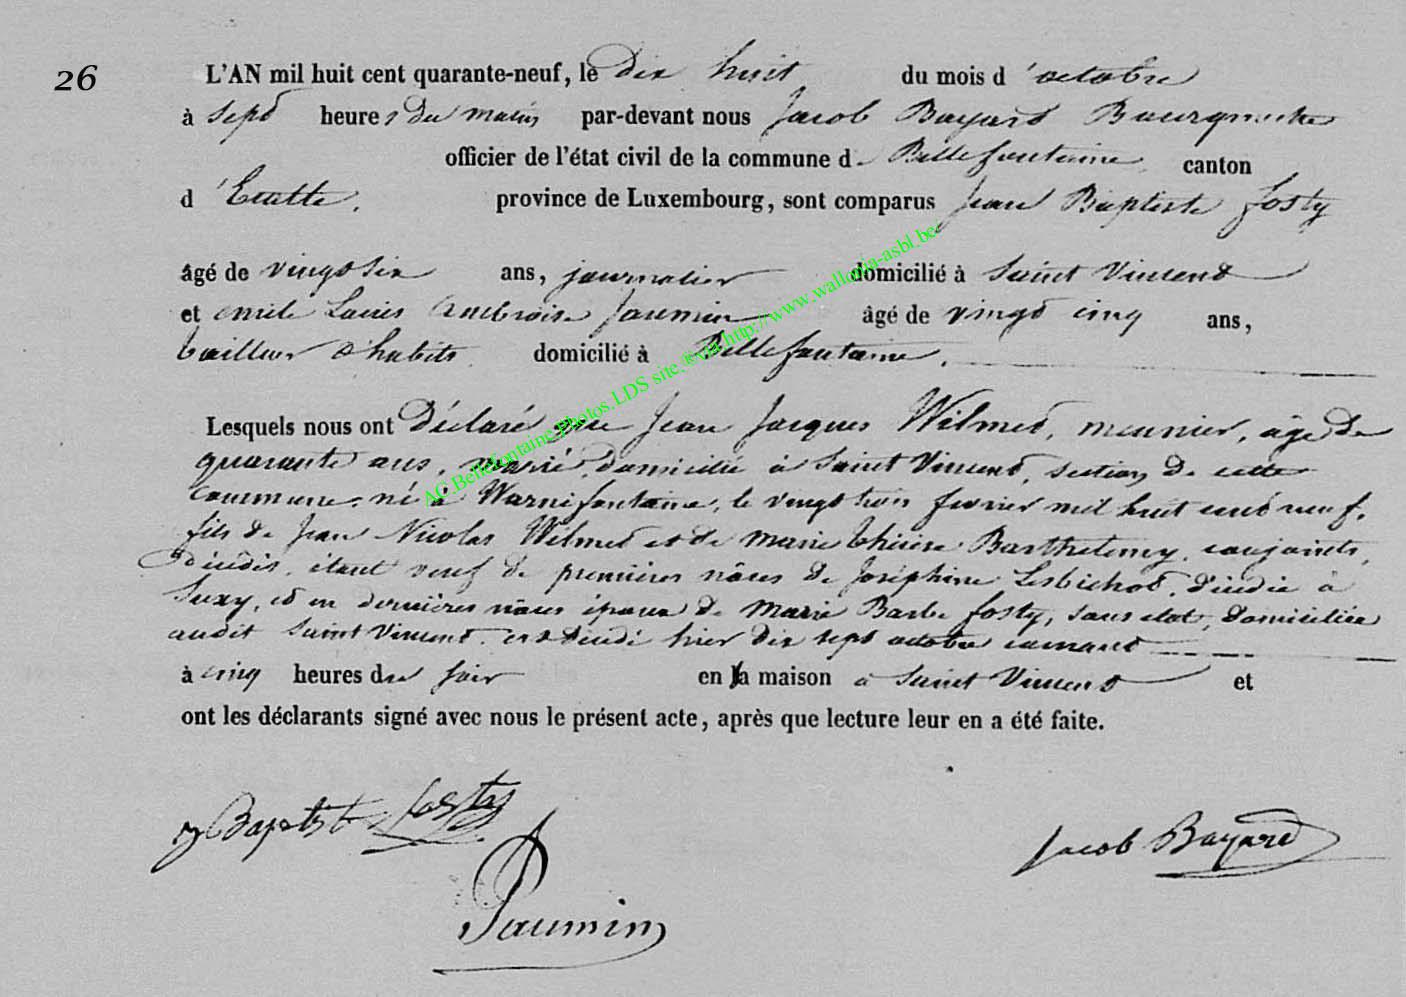 26
L'AN mil huit cent quarante-neuf, le dix huit du mois d'octobre
à sept heures du matin par-devant nous Jacob Bayard Bourgmestre
officier de l'état civil de la commune de Bellefontaine canton
d'Etalle, province de Luxembourg, sont comparus Jean Baptiste Fosty
âgé de vingt six ans, journalier domicilié à Saint Vincent
et emile Louis Ambroise Jaumin âgé de vingt cinq ans,
tailleur d'habits domicilié à Bellefontaine.
Lesquels nous ont déclaré que Jean Jacques Wilmet, meunier, âgé de
quarante ans, marié, domicilié à Saint Vincent, section de cette
commune, né à Warnifontaine, le vingt trois fevrier mil huit cent neuf,
fils de Jean Nicolas Wilmet et de Marie Thérèse Barthelemy, conjoints,
décédés, étant veuf de premières nôces de Joséphine décédée à
Suxy, et en dernières nôces époux de Marie Barbe Fosty, sans état, domiciliée
audit Saint Vincent, est décédé hier dix sept octobre courant
à cinq heures du soir en la maison à Saint Vincent et
ont les déclarants signé avec nous le présent acte, après que lecture leur en a été faite.
J Baptiste Fosty
Jacob Bayard
Jaumin
AC.Bellefontaine.Photos.LDS site.®via http://www.wallonia-asbl.be/